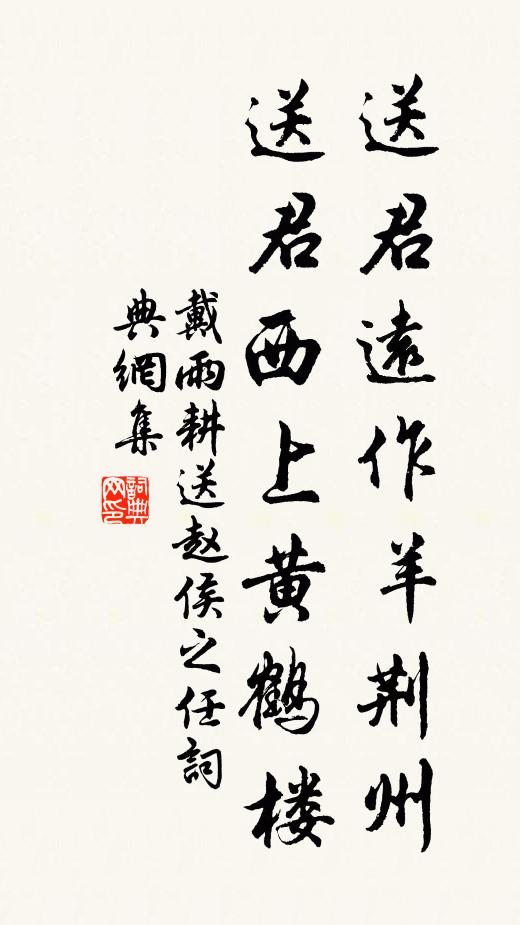 送君遠作羊荆州
送君西上黄鹤楼
戴雨耕送赵侯之任詞
典網集
詞典网印